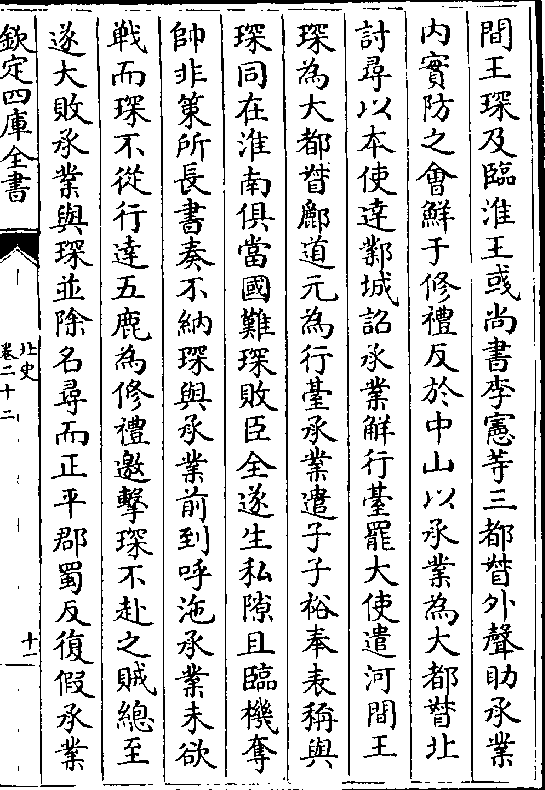 間王琛及臨淮王彧尚書李憲等三都督外聲助承業
内實防之會鮮于修禮反於中山以承業為大都督北
討尋以本使達鄴城詔承業解行臺罷大使遣河間王
琛為大都督酈道元為行臺承業遣子子裕奉表稱與
琛同在淮南俱當國難琛敗臣全遂生私隙且臨機奪
帥非策所長書奏不納琛與承業前到呼沲承業未欲
戰而琛不從行達五鹿為修禮邀擊琛不赴之賊總至
遂大敗承業與琛並除名尋而正平郡蜀反復假承業
欽定四庫全書
北史
卷二十二
十一